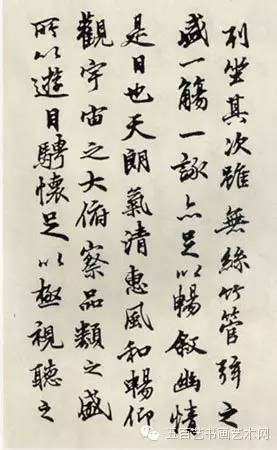 列坐其次雖無絲竹管弦之
盛一觴一詠亦足以暢敘幽情
是日也天朗氣清惠風和暢仰
觀宇宙之大俯察品類之盛
所以遊目騁懷足以極視聽之
五百艺书画艺术网